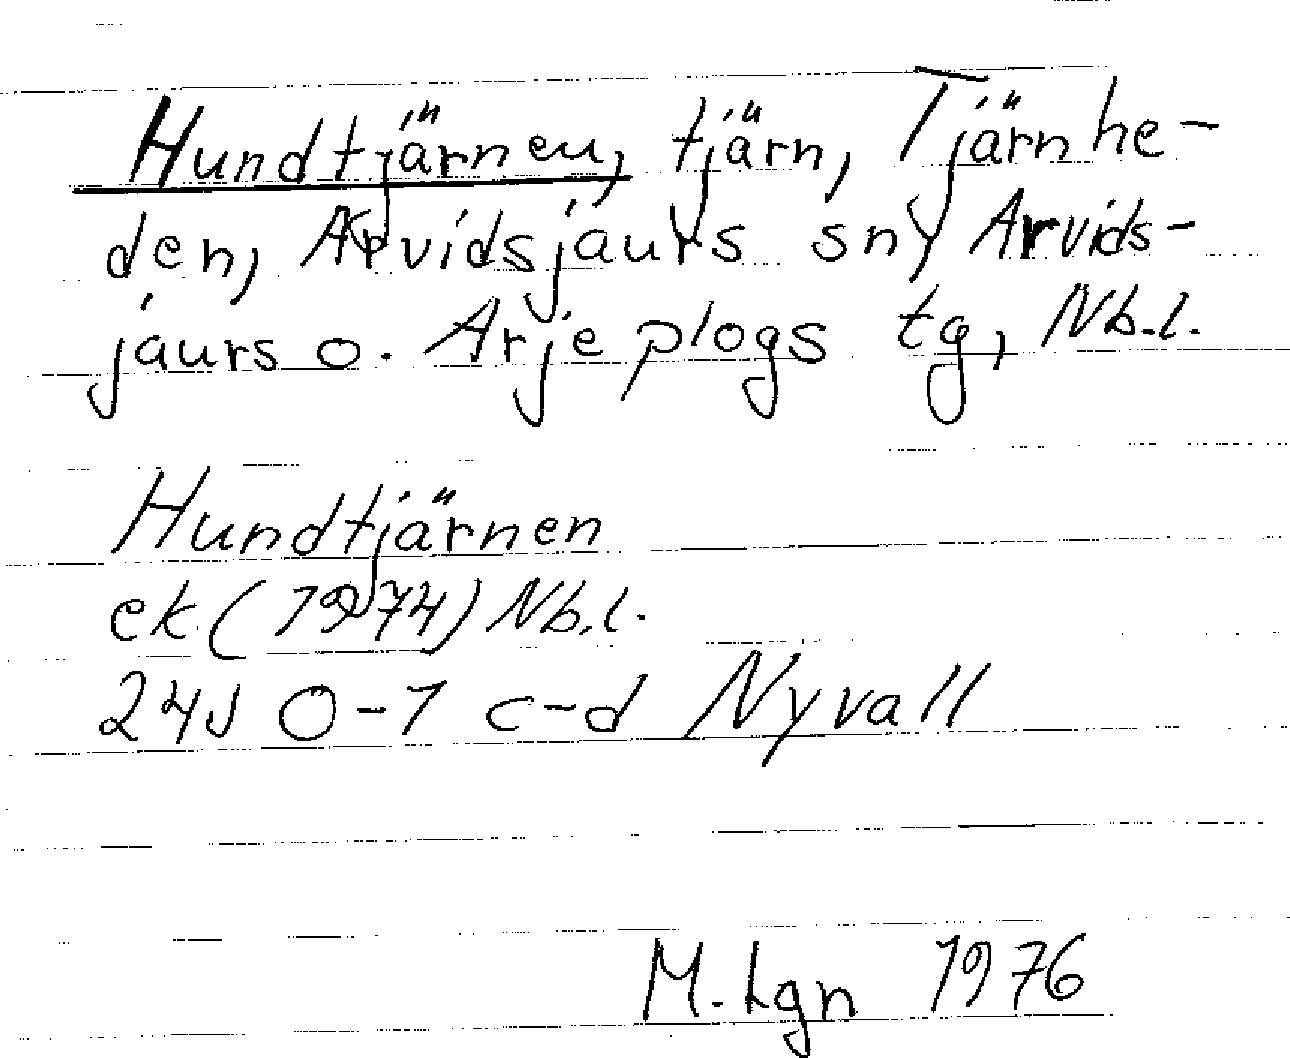 Hundtjärnen, tjärn, Tjärnhe-
den, Arvidsjaurs sn, Arvids-
jaurs o. Arjeplogs tg, Nb.l.
Hundtjärnen
ek (1974) Nb.l.
24J 0-1 c-d Nyvall
M. Lgn 1976